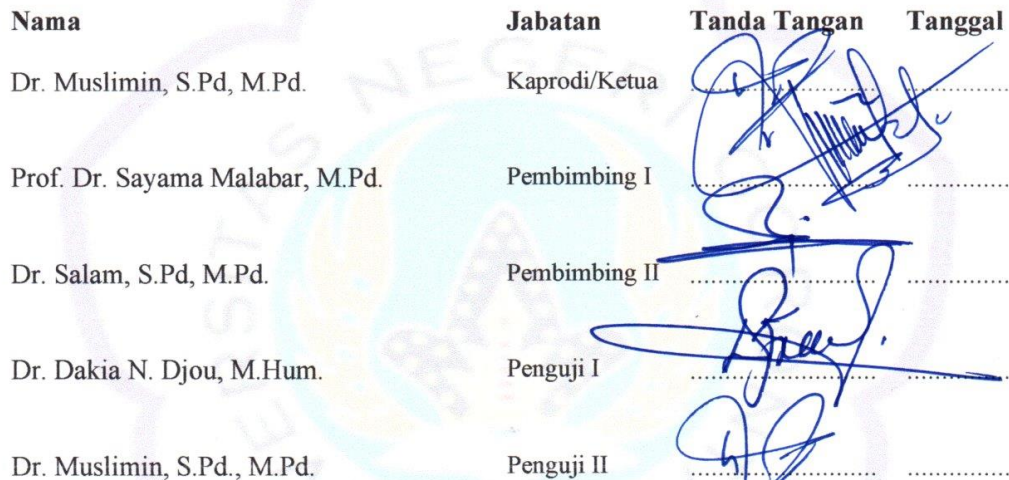 Nama Jabatan Tanda Tangan Tanggal
Dr. Muslimin, S.Pd, M.Pd. Kaprodi/Ketua ....................
Prof. Dr. Sayama Malabar, M.Pd. Pembimbing I .................... ....................
Dr. Salam, S.Pd, M.Pd. Pembimbing II .................... ....................
Dr. Dakia N. Djou, M.Hum. Penguji I .................... ....................
Dr. Muslimin, S.Pd., M.Pd. Penguji II .................... ....................